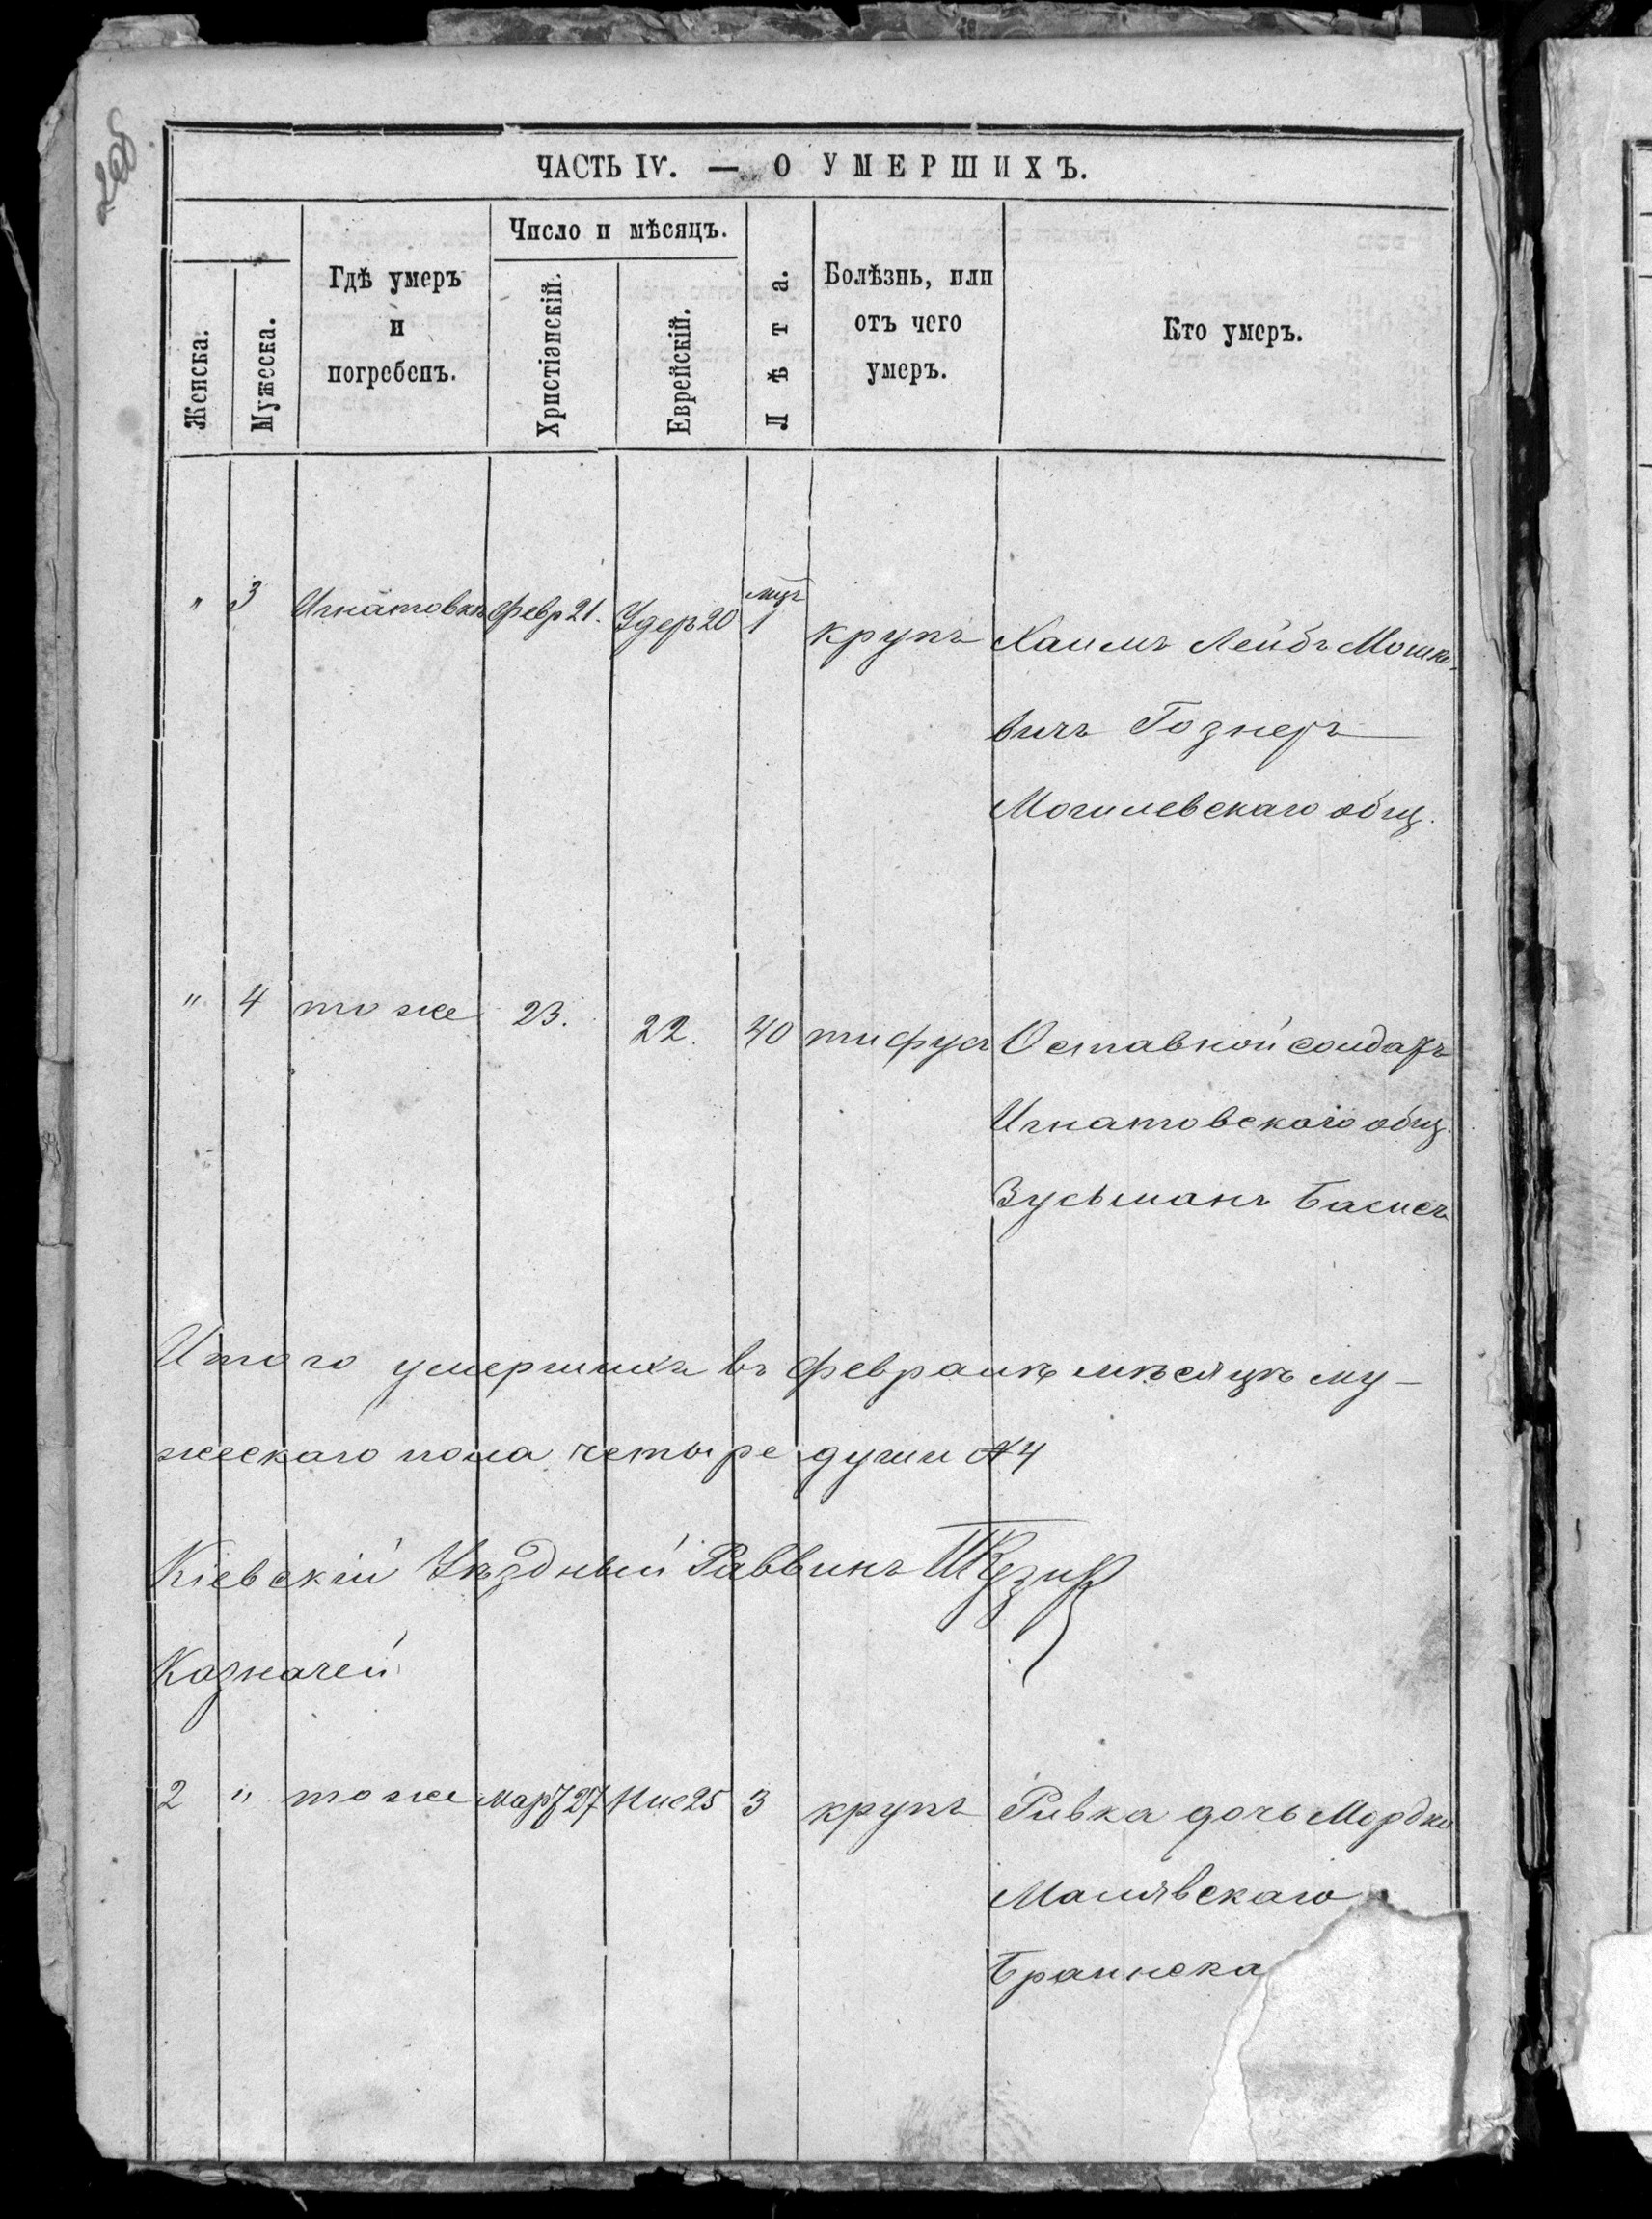 ЧАСТЬ IV. — О УМЕРШИХЪ.
Женска.
Мужеска.
Гдѣ умеръ
и
погребенъ.
Число и мѣсяцъ.
Христіанскій.
Еврейскій.
Лѣта.
Болѣзнь, или
отъ чего
умеръ.
Кто умеръ.
" 3 Игнатовкѣ Февр 21. Удеръ 20 мц 1 крупъ Хаимъ Лейбъ Мошко-
вичъ Гознеръ
Могилевскаго общ.
" 4 тоже 23. 22. 40 тифусъ Оставной солдатъ
Игнатовскаго общ.
Зусьманъ Басисъ
Итого умершихъ въ Февралѣ мѣсяцѣ му-
жескаго пола четыре души № 4
Кіевскій Уѣздный Раввинъ
Казначей
2 " тоже Март 27 Нис 25 3 крупъ Ривка дочь Мордко
Малявскаго
Браинска